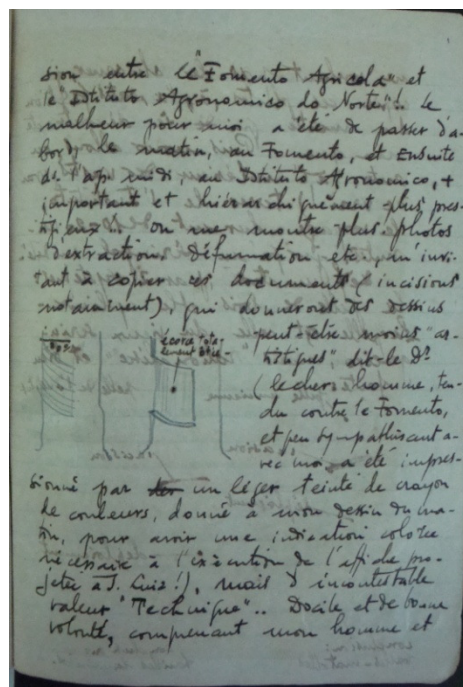 sion entre le "Fomento Agricola" et
le "Istituto Agronomico do Norte"! Le
malheur pour moi a été de passer d'a-
bord, le matin, au Fomento, et Ensuite
ds. l'ap. midi au Istituto Agronomico, +
important et hiérarchiquement plus pres-
tigieux!. On me montre plus. photos
d'extractions, défumation etc. m'invi-
tant à copier ces documents (incisions
notamment), qui donneront des dessins
peut-être moins "ar-
tistiques" dit-le Dr
ecorce tota-
lement
(le cher homme, ten-
du contre le Fomento,
et peu sympathisant a-
vec moi, a été impres-
sionné par un léger teinté de crayon
de couleurs, donné à mon dessin du ma-
tin, pour avoir une indication colorée
nécessaire à l'exécution de l'affiche pro-
jetée à S. Luiz!), mais d'incontestable
valeur "Technique".. Docile et de bonne
volonté, comprenant mon homme et